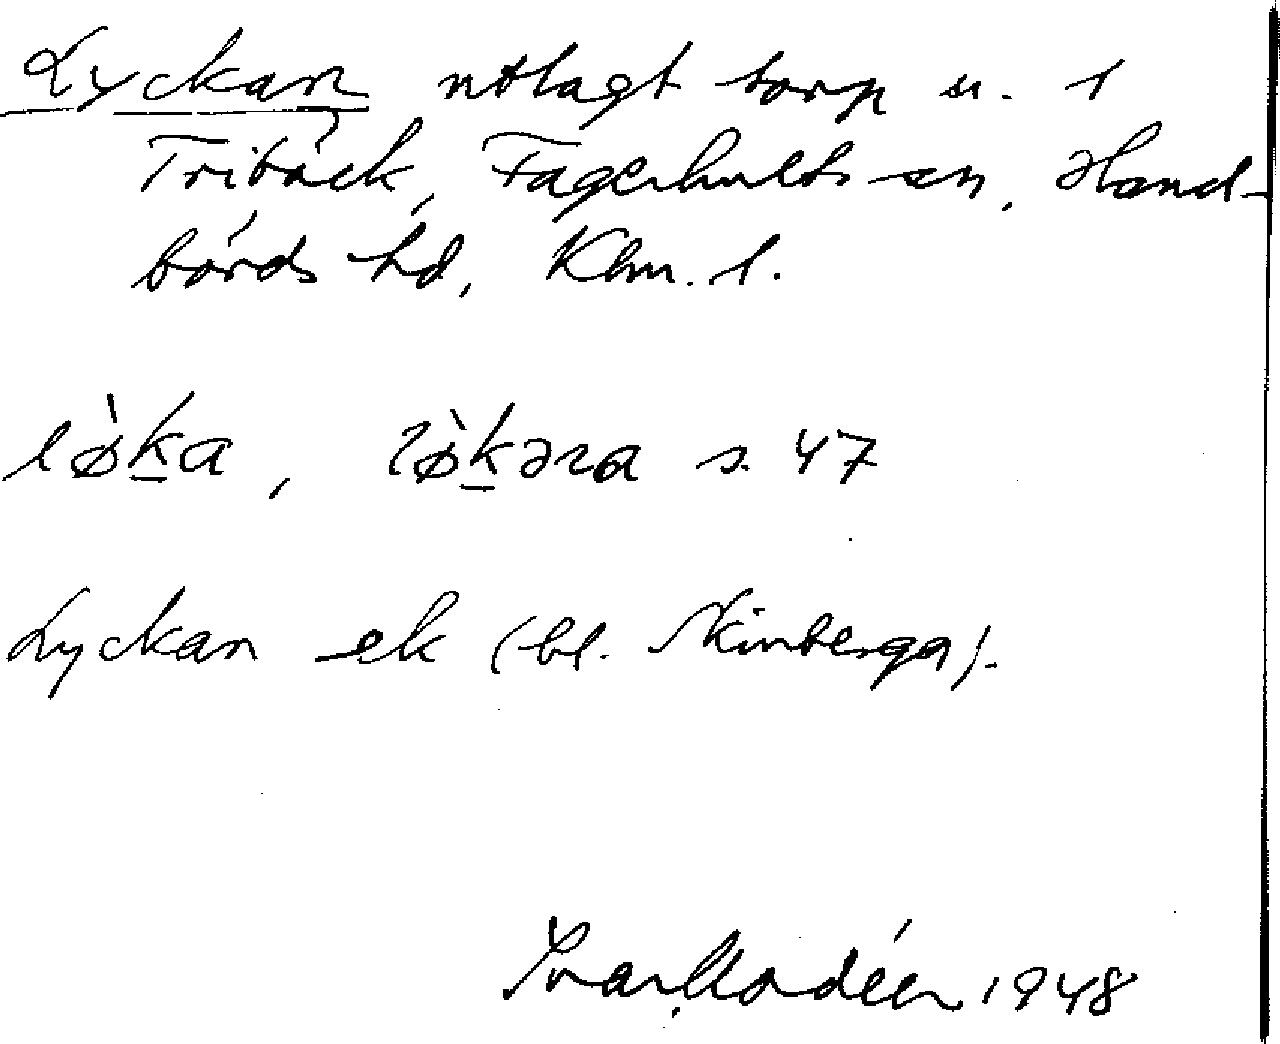 Lyckan utlagt torp u. 1
Tribäck, Fagerhults sn, Hand-
börds hd, Klm. l.
løka, løkəra s. 47
Lyckan ek (bl.
Ivar Modéer 1948